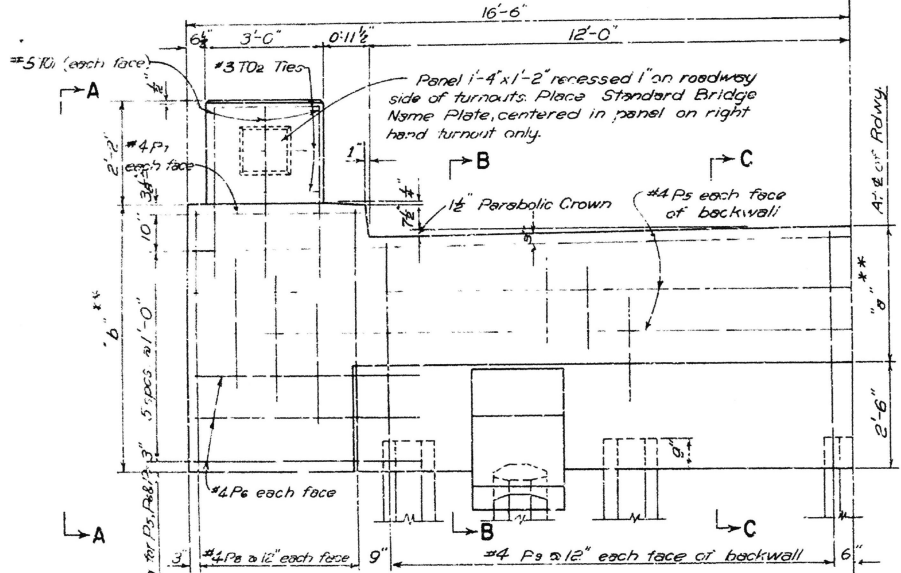 16'-6"
3'-0"
0'-11½"
12'-0"
#3 TO2 Ties
A
Panel 1'-4"x1'-2" recessed 1" on roadway
side of turnouts. Place Standard Bridge
Name Plate, centered in panel on right
hand turnout only.
2'-2"
#4 P7
each face
1"
B
C
At ℄ of Rdwy.
1½" Parabolic Crown
#4 P5 each face
of backwall
10"
7½"
"b" **
"a" **
5 spcs @ 1'-0"
2'-6"
9"
3"
#4 P6 each face
A
B
C
3"
#4 P8 @ 12" each face
9"
#4 P9 @ 12" each face of backwall
6"